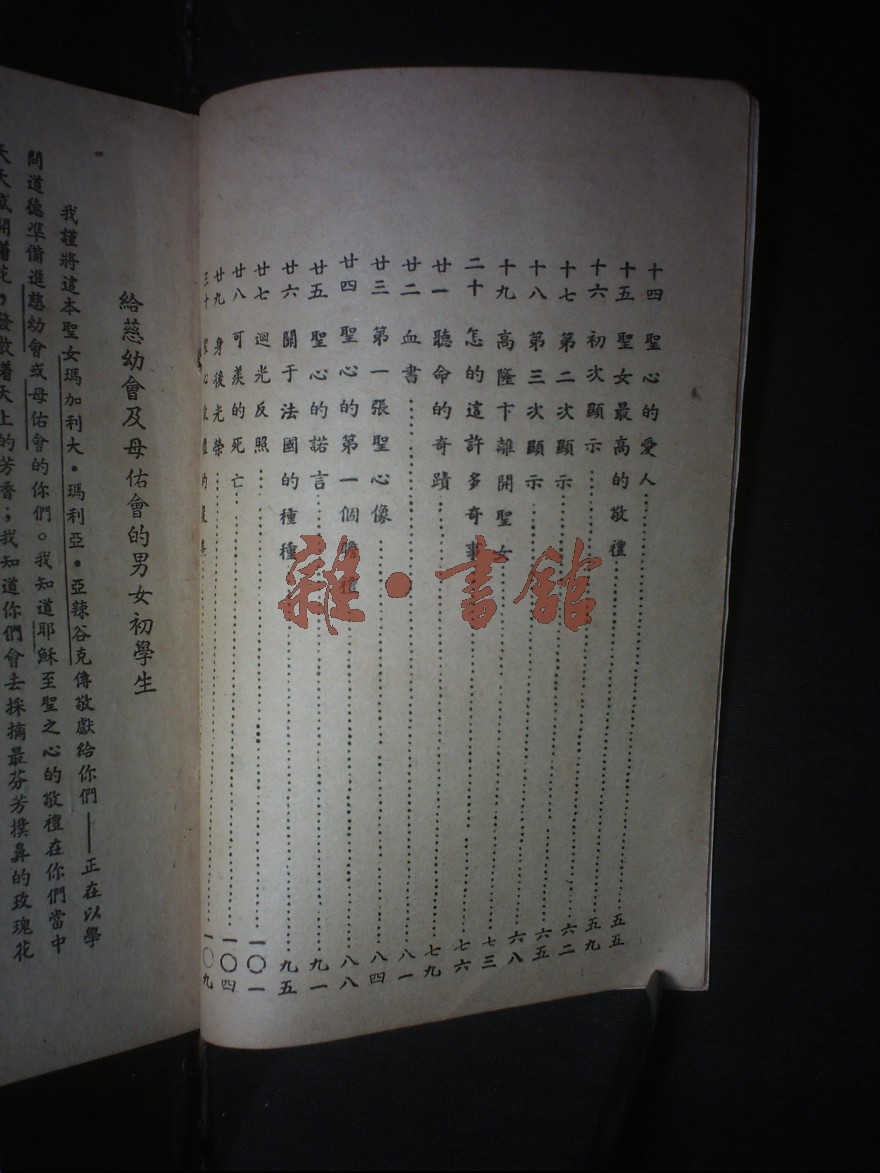 十四 聖心的愛人……五五
十五 聖女最高的敬禮……五九
十六 初次顯示……六二
十七 第二次顯示……六五
十八 第三次顯示……六八
十九 高隆卞離開聖女……七三
二十 怎的這許多奇事……七六
廿一 聽命的奇蹟……七九
廿二 血書……八一
廿三 第一張聖心像……八四
廿四 聖心的第一個瞻禮……八八
廿五 聖心的諾言……九一
廿六 關于法國的種種……九五
廿七 迴光反照……一〇一
廿八 可羨的死亡……一〇四
廿九 身後光荣……一〇九
三十 心的
給慈幼會及母佑會的男女初學生
我謹將這本聖女瑪加利大•瑪利亞•亞辣谷克傳敬獻給你們——正在以學
問道德準備進慈幼會或母佑會的你們。我知道耶穌至聖之心的敬禮在你們當中
天天盛開著花，發散著天上的芳香；我知道你們會去採摘最芬芳撲鼻的玫瑰花
雜•書館